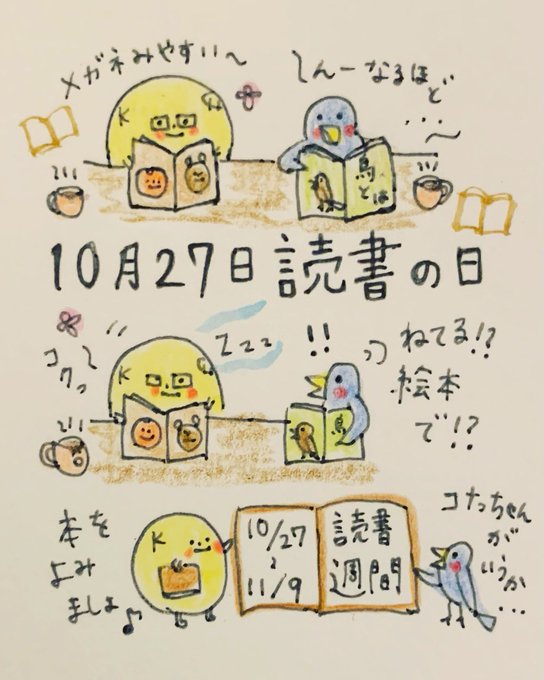 メガネみやすい〜
しんーなるほど…〜
K
鳥とは
10月27日読書の日
コクッ〜
K
Zzzz
!!
ねてる!?
絵本
で!?
鳥
本を
よみ
ましょ♪
K
10/27
〜
11/9
読書
週間
コナっちゃん
が
いうか…